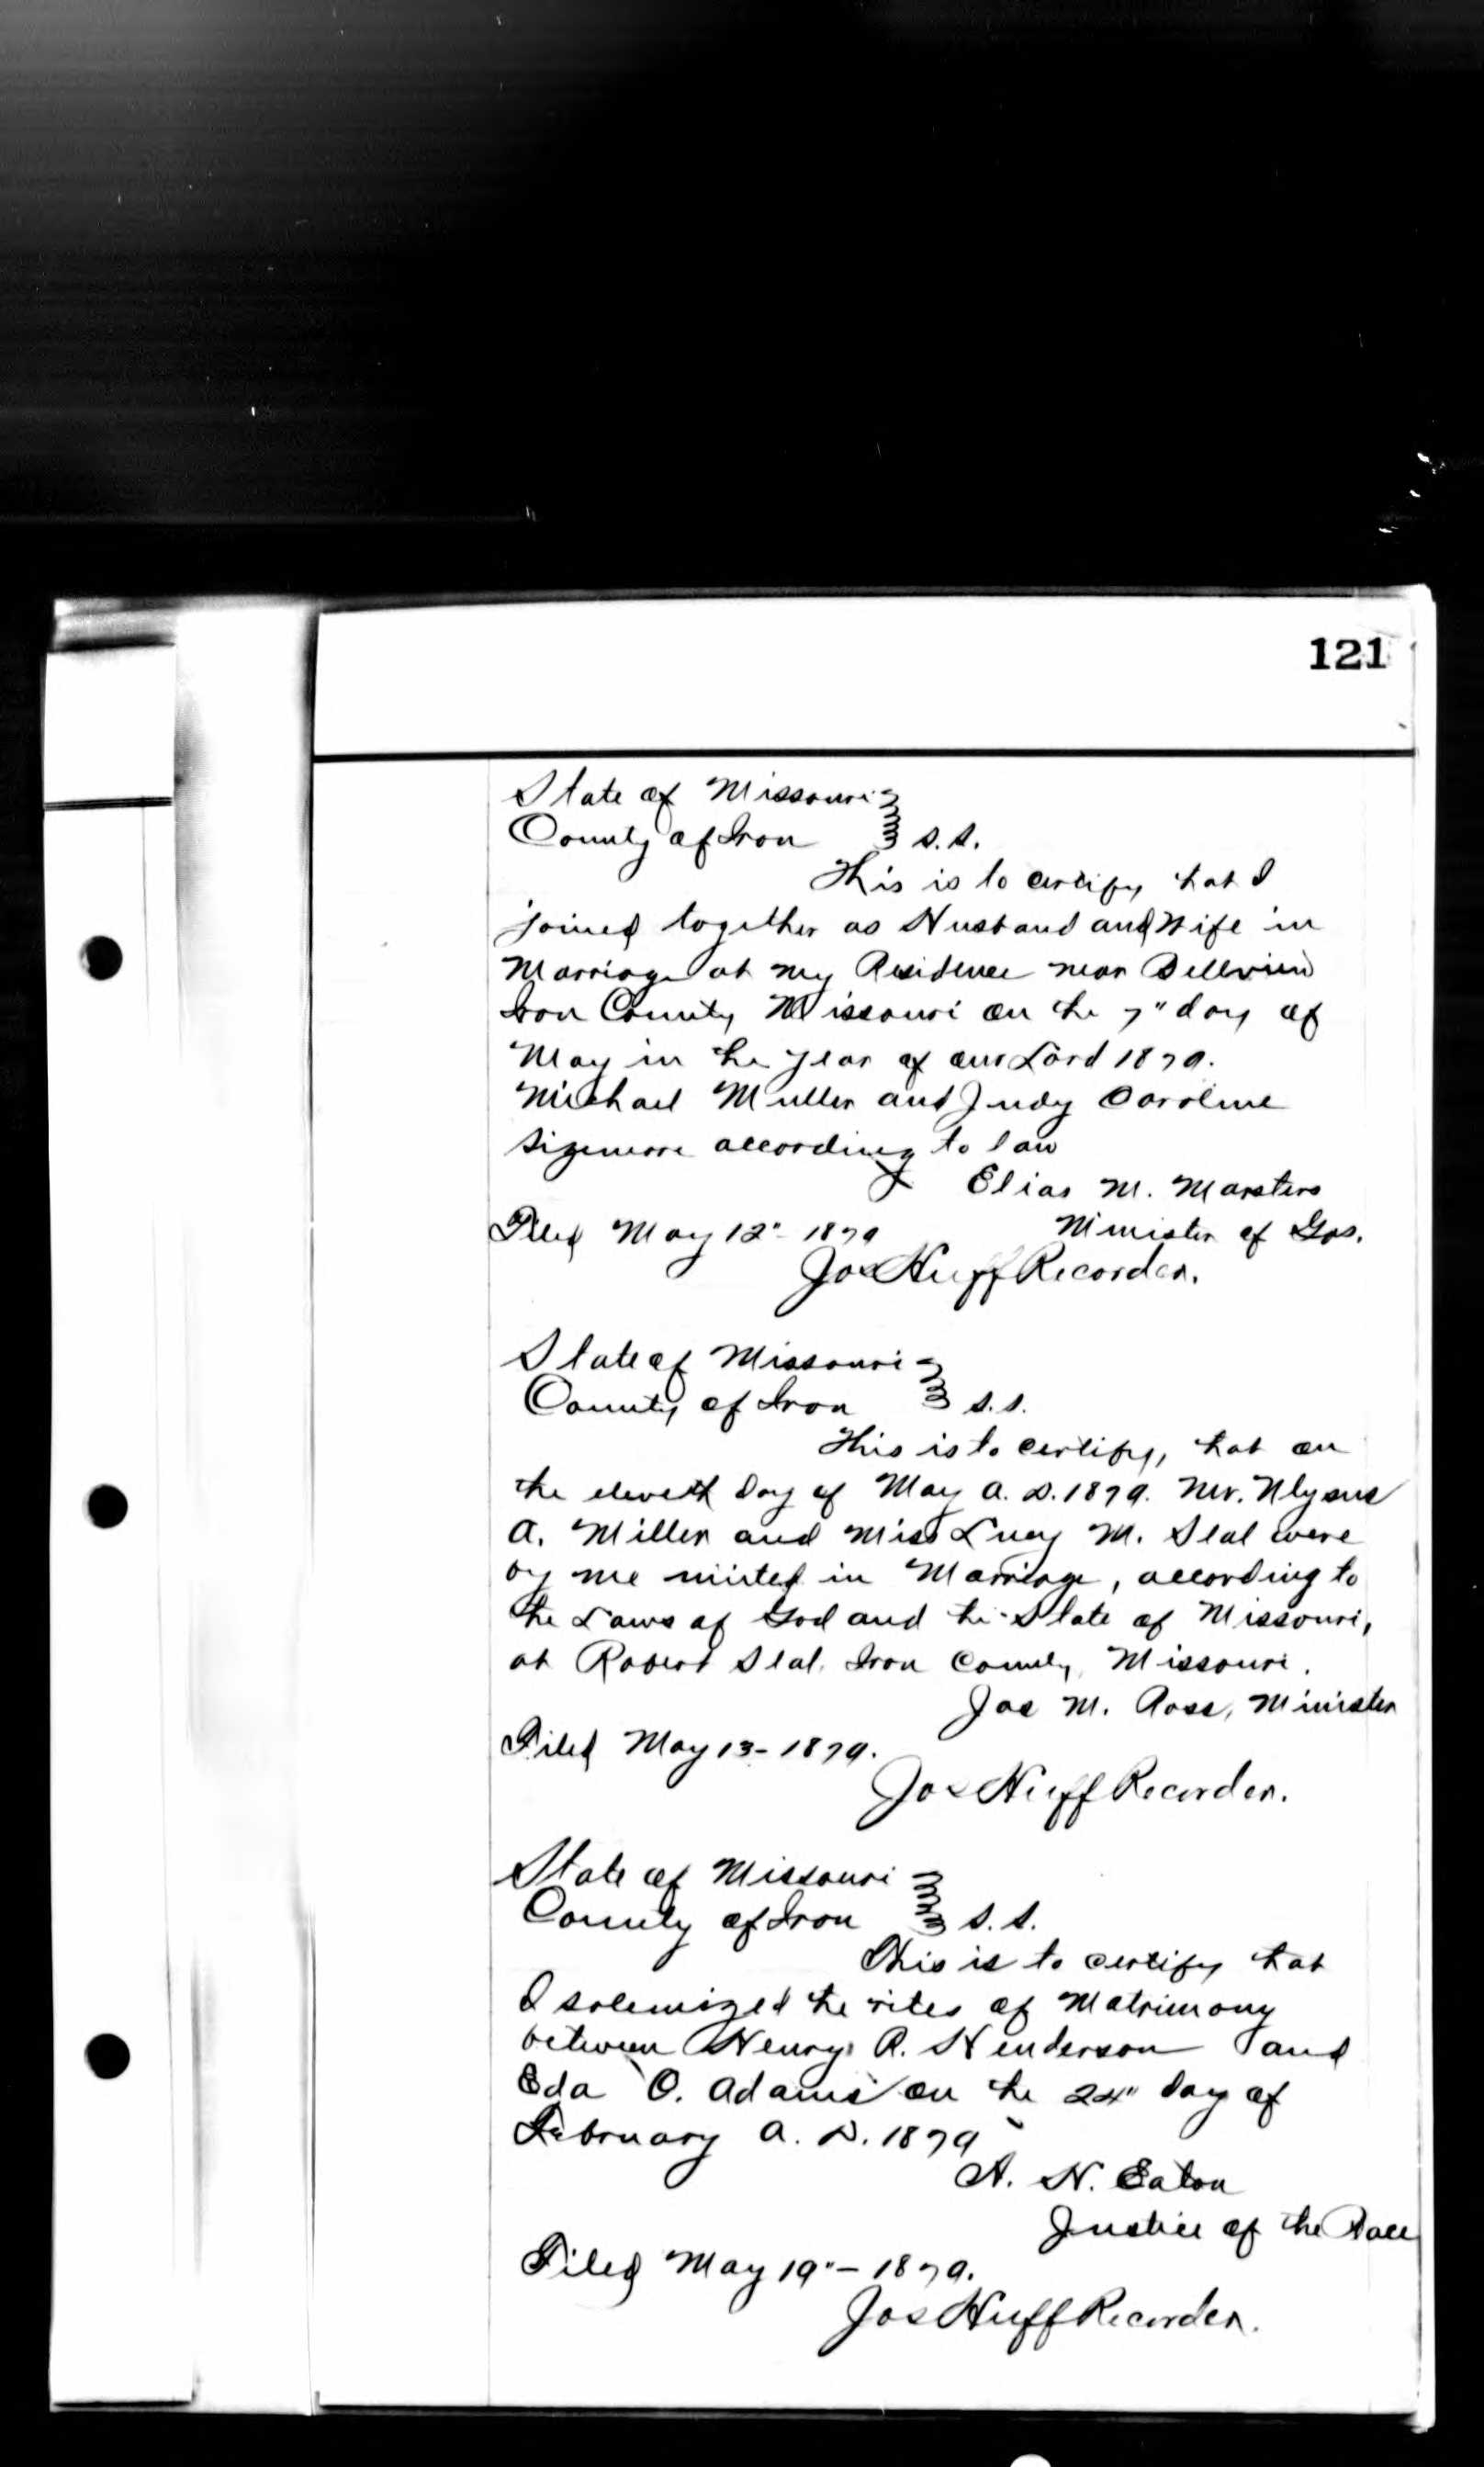 121
State of Missouri
County of Iron s.s.
This is to certify that I
joined together as Husband and Wife in
Marriage at my Residence near Bellview
Iron County Missouri on the 7" day of
May in the year of our Lord 1879.
Michael Muller and Judy Caroline
Sizemore according to law
Elias M. Marsters
Minister of Gos.
Filed May 12"- 1879
Jos Huff Recorder.
State of Missouri
County of Iron s.s.
This is to certify, that on
the eleveth day of May A.D. 1879. Mr. Ulysus
A. Miller and Miss Lucy M. Seal were
by me united in Marriage, according to
the Laws of God and the State of Missouri,
at Robert Seal. Iron County Missouri.
Jas M. Ross, Minister
Filed May 13- 1879.
Jos Huff Recorder.
State of Missouri
County of Iron s.s.
This is to certify that
I solemized the rites of Matrimony
between Henry R. Henderson and
Eda O. Adams on the 24" day of
February A.D. 1879
A. N. Eaton
Justice of the Peace
Filed May 19"- 1879.
Jos Huff Recorder.